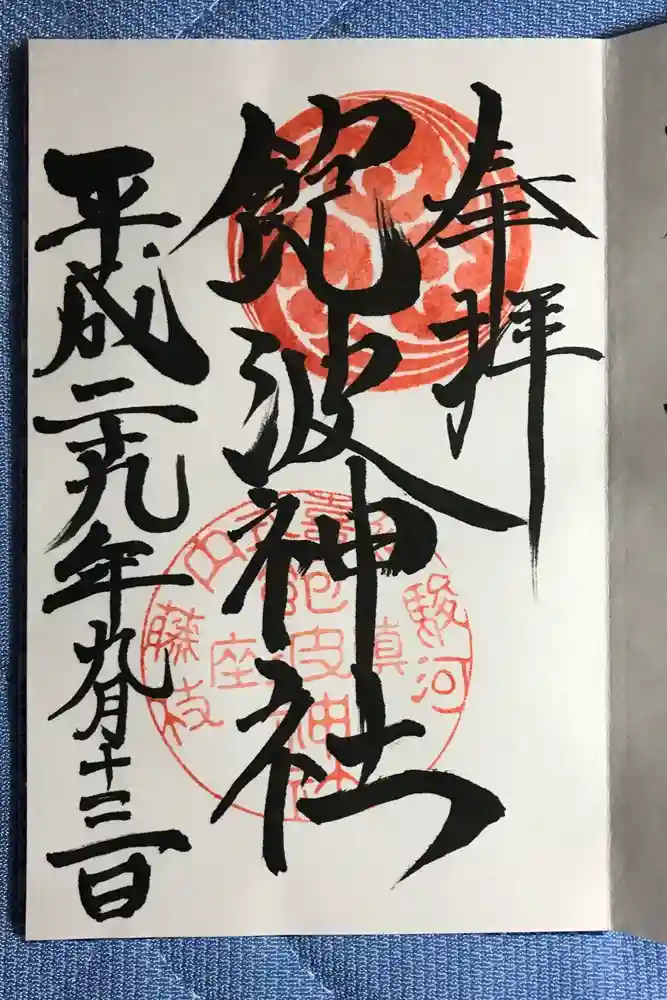 奉拝
飽波神社
平成二十九年九月十三日
延喜式内
駿河
藤枝
鎮座
飽波神社